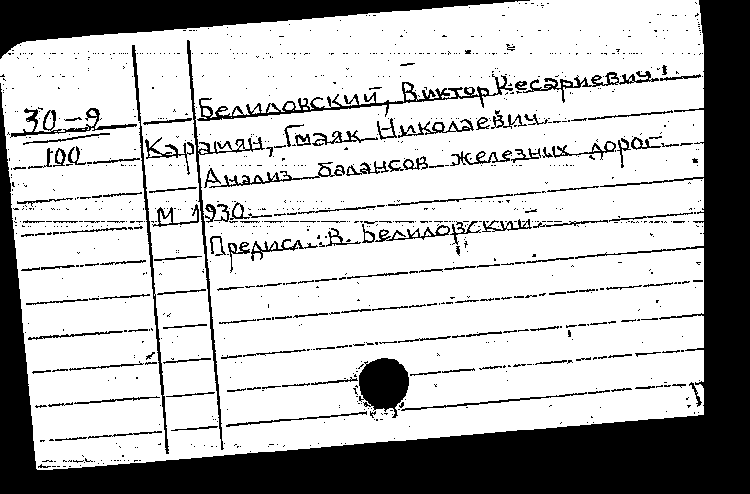 30-9
100
Белиловский, Виктор Кесариевич.
Карамян, Гмаяк Николаевич.
Анализ балансов железных дорог.
М 1930.
Предисл.: В. Белиловский.